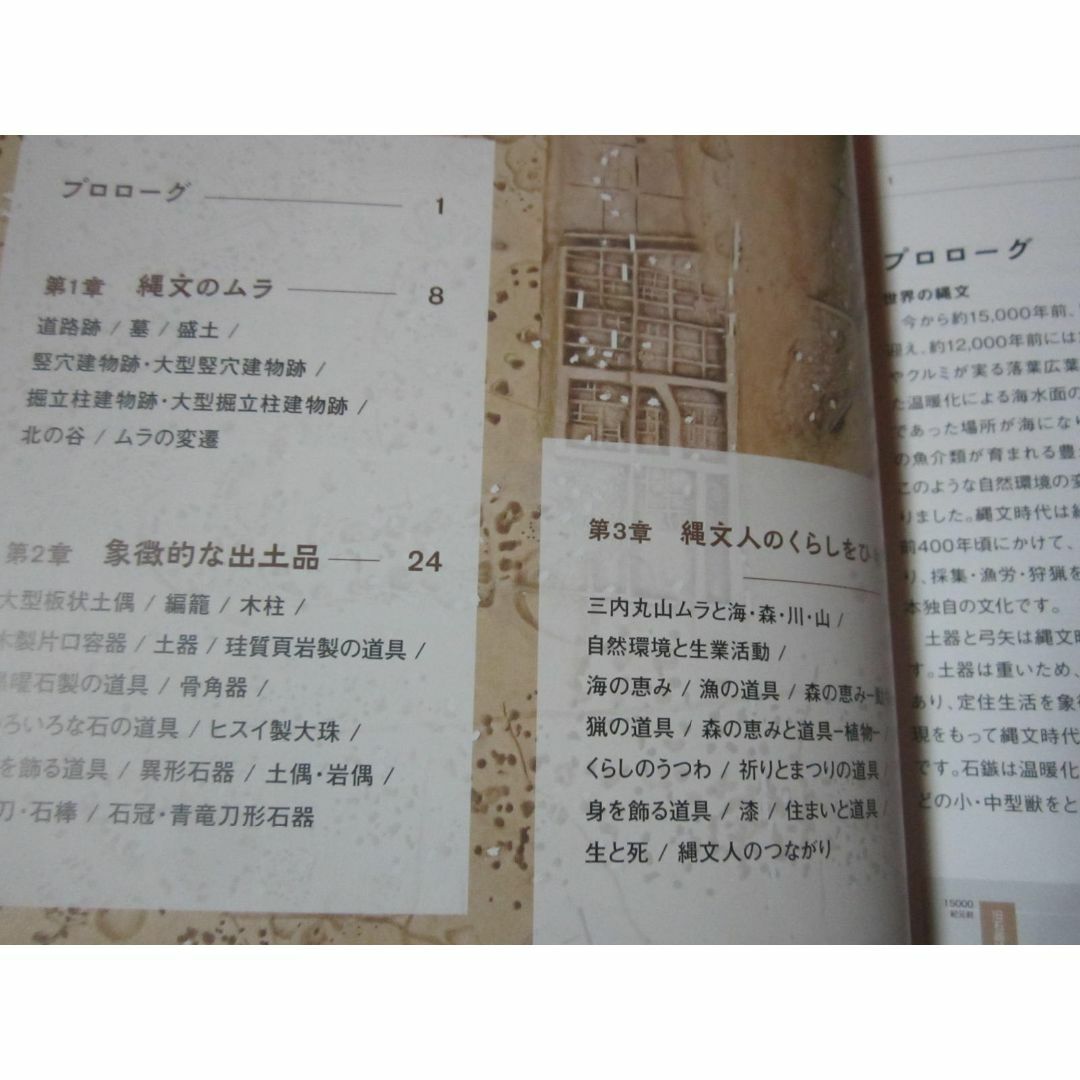 プロローグ 1
第1章 縄文のムラ 8
道路跡 / 墓 / 盛土 /
竪穴建物跡・大型竪穴建物跡 /
掘立柱建物跡・大型掘立柱建物跡 /
北の谷 / ムラの変遷
第2章 象徴的な出土品 24
大型板状土偶 / 編籠 / 木柱 /
木製片口容器 / 土器 / 珪質頁岩製の道具 /
曜石製の道具 / 骨角器 /
いろいろな石の道具 / ヒスイ製大珠 /
を飾る道具 / 異形石器 / 土偶・岩偶 /
刀・石棒 / 石冠・青竜刀形石器
第3章 縄文人のくらしをひ
三内丸山ムラと海・森・川・山 /
自然環境と生業活動 /
海の恵み / 漁の道具 / 森の恵み
猟の道具 / 森の恵みと道具-植物- /
くらしのうつわ / 祈りとまつりの道具
身を飾る道具 / 漆 / 住まいと道具 /
生と死 / 縄文人のつながり
1
プロローグ
世界の縄文
今から約15,000年前、
迎え、約12,000年前には
やクルミが実る落葉広葉
た温暖化による海水面の
であった場所が海になり
の魚介類が育まれる豊
このような自然環境の変
りました。縄文時代は
前400年頃にかけて、
り、採集・漁労・狩猟を
本独自の文化です。
土器と弓矢は縄文時
す。土器は重いため、
あり、定住生活を象
現をもって縄文時代
です。石鏃は温暖化
どの小・中型獣をと
15000
紀元前